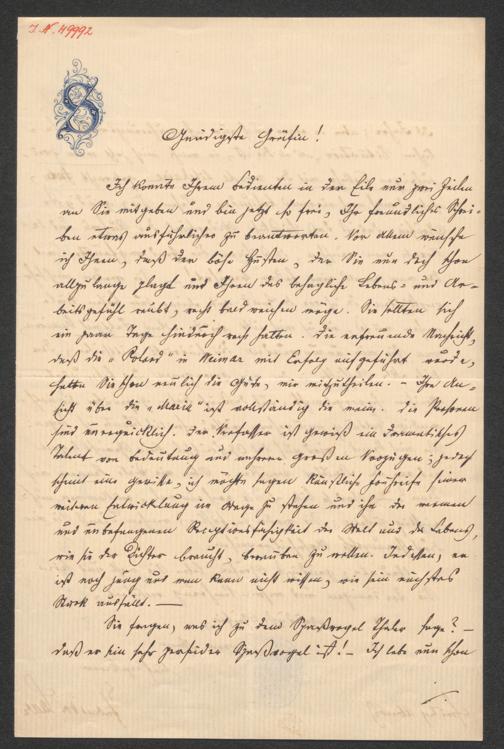 I. N. 49992
S
Gnädigste Gräfin!
Ich konnte Ihrem Bedienten in der Eile nur zwei Zeilen
an Sie mitgeben und bin jetzt so frei, Ihr freundliches Schrei-
ben etwas ausführlicher zu beantworten. Vor allem wünsche
ich Ihnen, daß der böse Husten, der Sie nun doch schon
allzulange plagt und Ihnen das behagliche Lebens- und Ar-
beitsgefühl raubt, recht bald weichen möge. Sie sollten sich
ein paar Tage hindurch recht halten. Die erfreuende Nachricht,
daß die "Roland" in Weimar mit Erfolg aufgeführt wurde,
hatten Sie schon neulich die Güte, mir mitzutheilen. – Ihre An-
sicht über die "Maria" ist vollständig die meine. Die Personen
sind unerquicklich. Der Verfasser ist gewiß ein dramatisches
Talent von Bedeutung und mehreren großen Vorzügen; jedoch
scheint eine gewisse, ich möchte sagen künstliche Frühreife seiner
weiteren Entwicklung im Wege zu stehen und ihn der warmen
und unbefangenen Receptionsfähigkeit der Welt und des Lebens,
wie sie der Dichter braucht, berauben zu wollen. Indessen, er
ist noch jung und man kann nicht wissen, wie sein nächstes
Werk ausfällt. —
Sie fragen, was ich zu dem Spaßvogel Thaler sage? –
daß er ein sehr perfider Spaßvogel ist! – Ich lebe nun schon